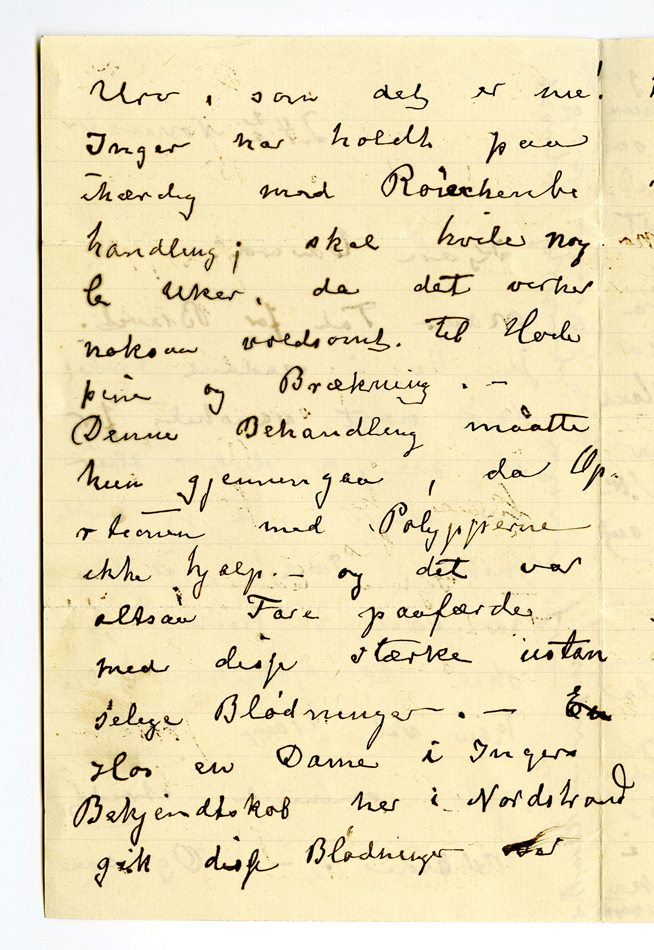 Uro, som det er nu!
Inger har holdt paa
ihærdig med Røickenbe
handling; skal hvile nog
le Uker, da det virker
noksaa voldsomt. til Hode
pine og Brækning. –
Denne Behandling måatte
hun gjennemgaa, da Op.
rtionen med Polypperne
ikke hjalp. – og det var
altsaa Fare paafærde
med disse stærke ustan
selige Blødninger. –
Hos en Dame i Ingers
Bekjendtskab her i Nordstrand
gik disse Blødninger